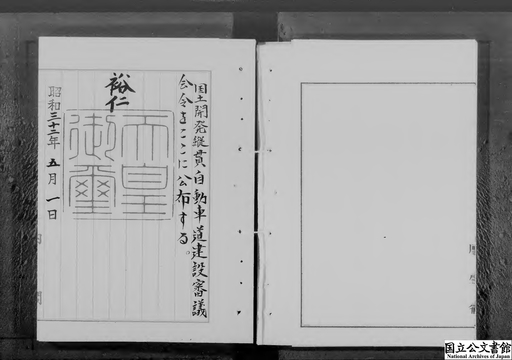 国土開発縦貫自動車道建設審議
会令をここに公布する。
裕仁
天皇
御璽
昭和三十三年五月一日
内閣
国立公文書館
National Archives of Japan